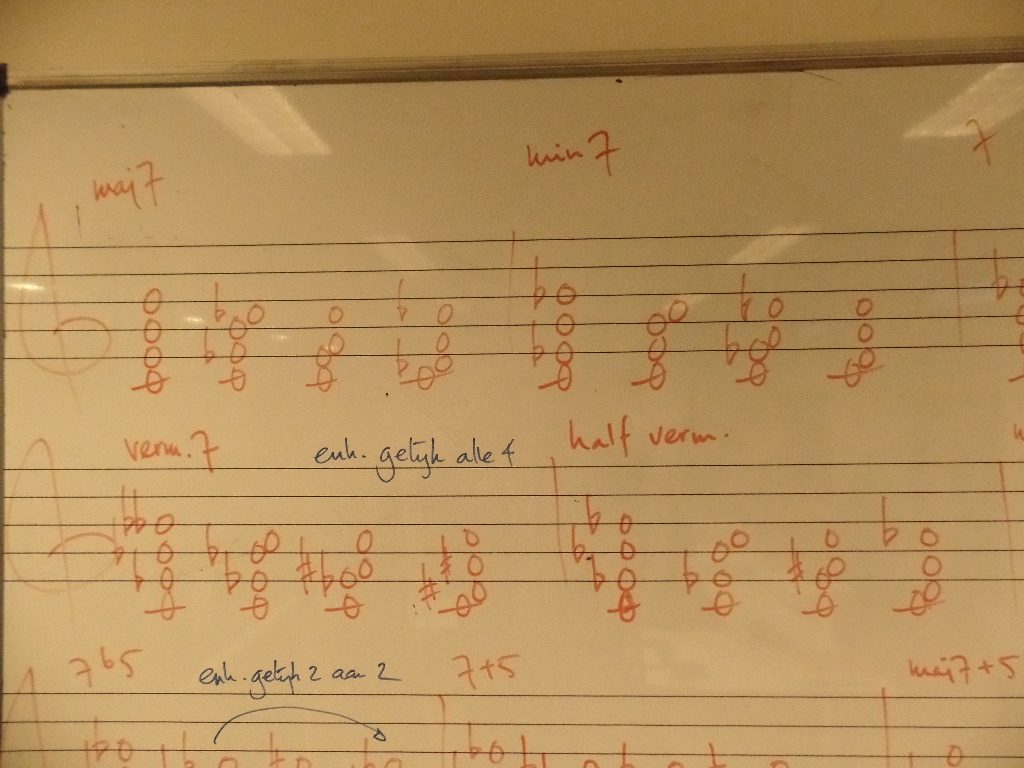 maj7 min7 7
verm.7 enh. gelijk alle 4 half verm.
7b5 enh. gelijk 2 aan 2 7+5 maj7+5